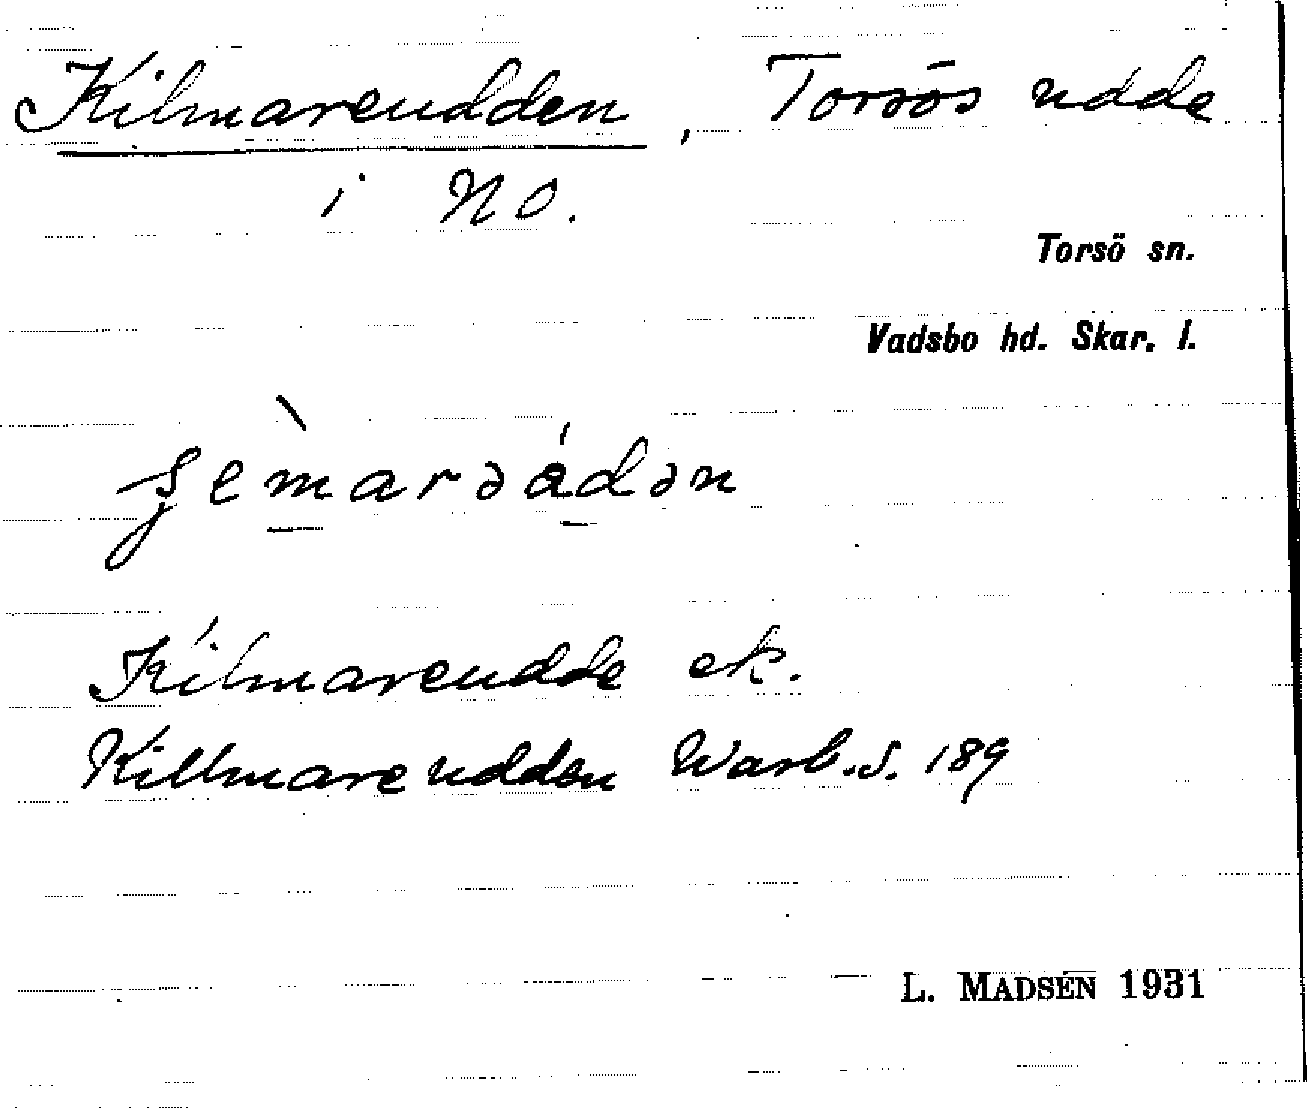 Kilmareudden, Torsös udde
i NO.
Torsö sn.
Vadsbo hd. Skar. l.
Kilmareudde ek.
Killmareudden Warb. s. 189
L. MADSÉN 1931